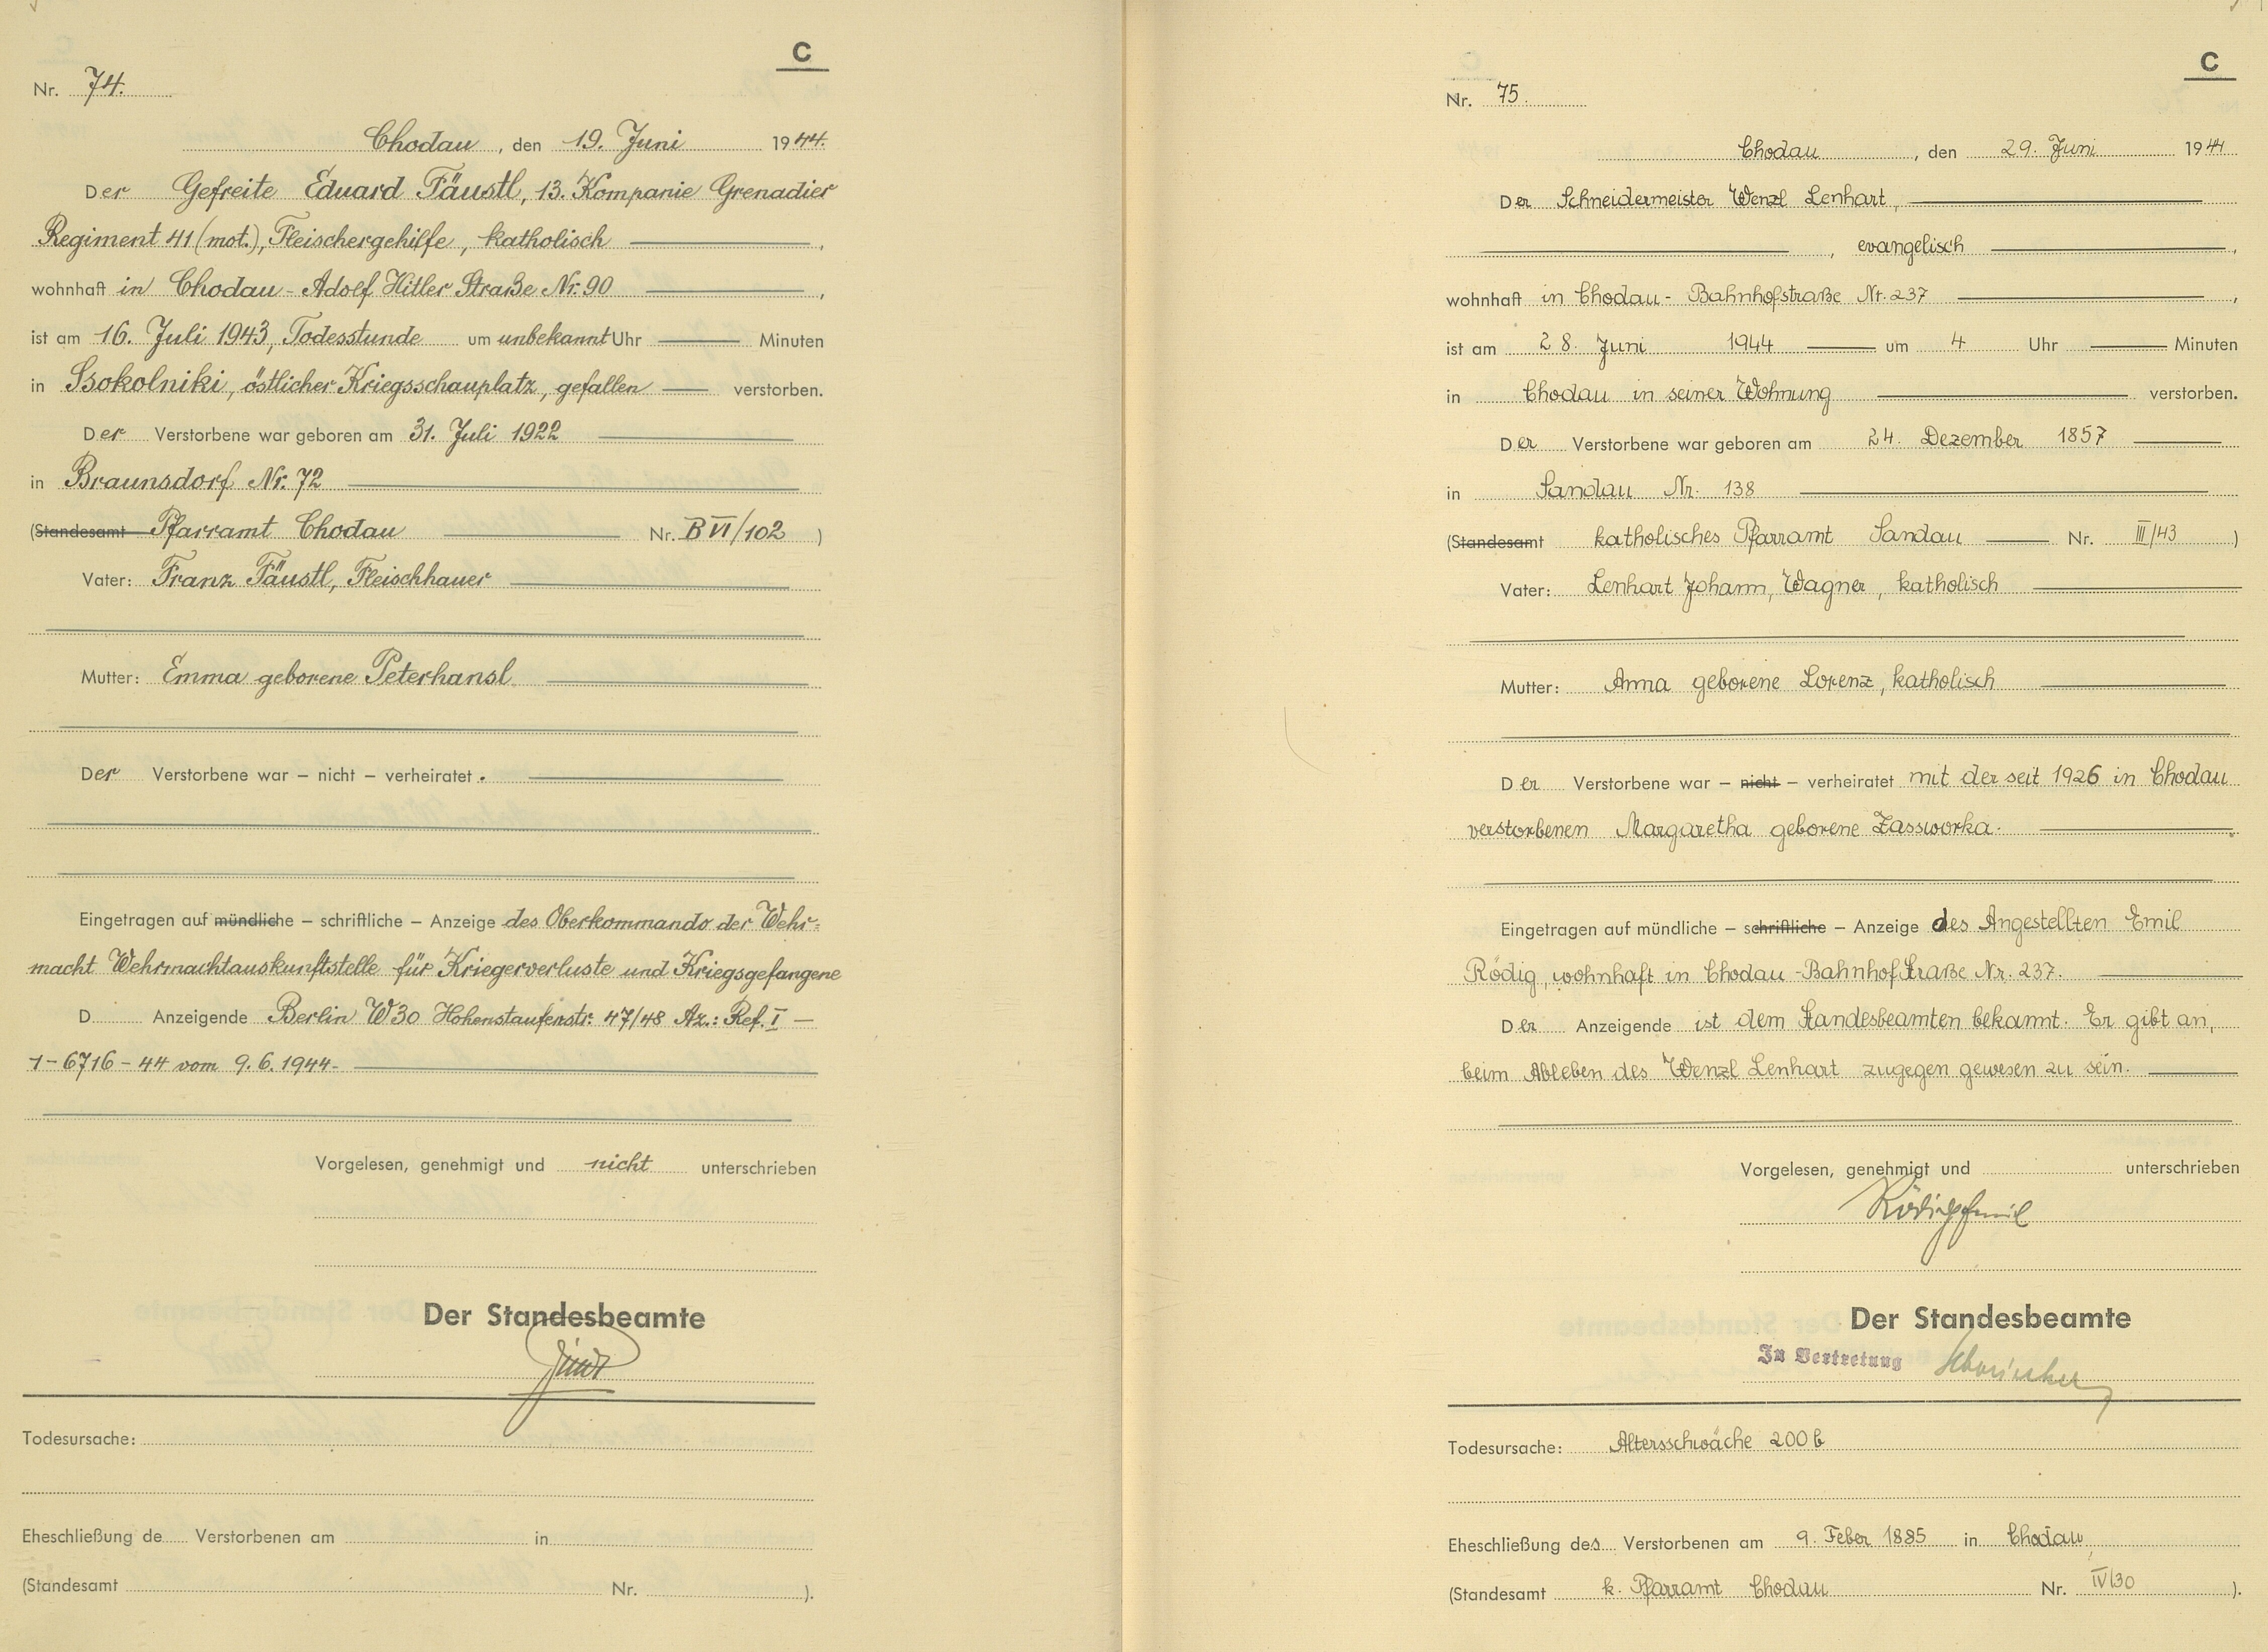 C
Nr. 74.
Chodau, den 19. Juni 1944.
Der Gefreite Eduard Fäustl, 13. Kompanie Grenadier
Regiment 41 (mot.), Fleischergehilfe, katholisch,
wohnhaft in Chodau - Adolf Hitler Straße Nr. 90,
ist am 16. Juli 1943, Todesstunde um unbekannt Uhr Minuten
in Ssokolniki, östlicher Kriegsschauplatz, gefallen verstorben.
Der Verstorbene war geboren am 31. Juli 1922
in Braunsdorf Nr. 72
(Standesamt Pfarramt Chodau Nr. B VI/102)
Vater: Franz Fäustl, Fleischhauer
Mutter: Emma geborene Peterhansl
Der Verstorbene war – nicht – verheiratet.
Eingetragen auf mündliche – schriftliche – Anzeige des Oberkommando der Wehr-
macht Wehrmachtauskunftstelle für Kriegerverluste und Kriegsgefangene
D Anzeigende Berlin W 30 Hohenstaufenstr. 47/48 Az.: Ref. I –
1-6716-44 vom 9.6.1944.
Vorgelesen, genehmigt und nicht unterschrieben
Der Standesbeamte
Todesursache:
Eheschließung de Verstorbenen am in
(Standesamt Nr. ).
C
Nr. 75.
Chodau, den 29. Juni 1944
Der Schneidermeister Wenzl Lenhart,
, evangelisch,
wohnhaft in Chodau - Bahnhofstraße Nr. 237,
ist am 28. Juni 1944 um 4 Uhr Minuten
in Chodau in seiner Wohnung verstorben.
Der Verstorbene war geboren am 24. Dezember 1857
in Sandau Nr. 138
(Standesamt katholisches Pfarramt Sandau Nr. III/43)
Vater: Lenhart Johann, Wagner, katholisch
Mutter: Anna geborene Lorenz, katholisch
Der Verstorbene war – nicht – verheiratet mit der seit 1926 in Chodau
verstorbenen Margaretha geborene Zassworka.
Eingetragen auf mündliche – schriftliche – Anzeige des Angestellten Emil
Rödig, wohnhaft in Chodau - Bahnhofstraße Nr. 237.
Der Anzeigende ist dem Standesbeamten bekannt. Er gibt an,
beim Ableben des Wenzl Lenhart zugegen gewesen zu sein.
Vorgelesen, genehmigt und unterschrieben
Rödig Emil
Der Standesbeamte
In Vertretung
Todesursache: Altersschwäche 200 b
Eheschließung des Verstorbenen am 9. Feber 1885 in Chodau,
(Standesamt k. Pfarramt Chodau Nr. IV/30 ).